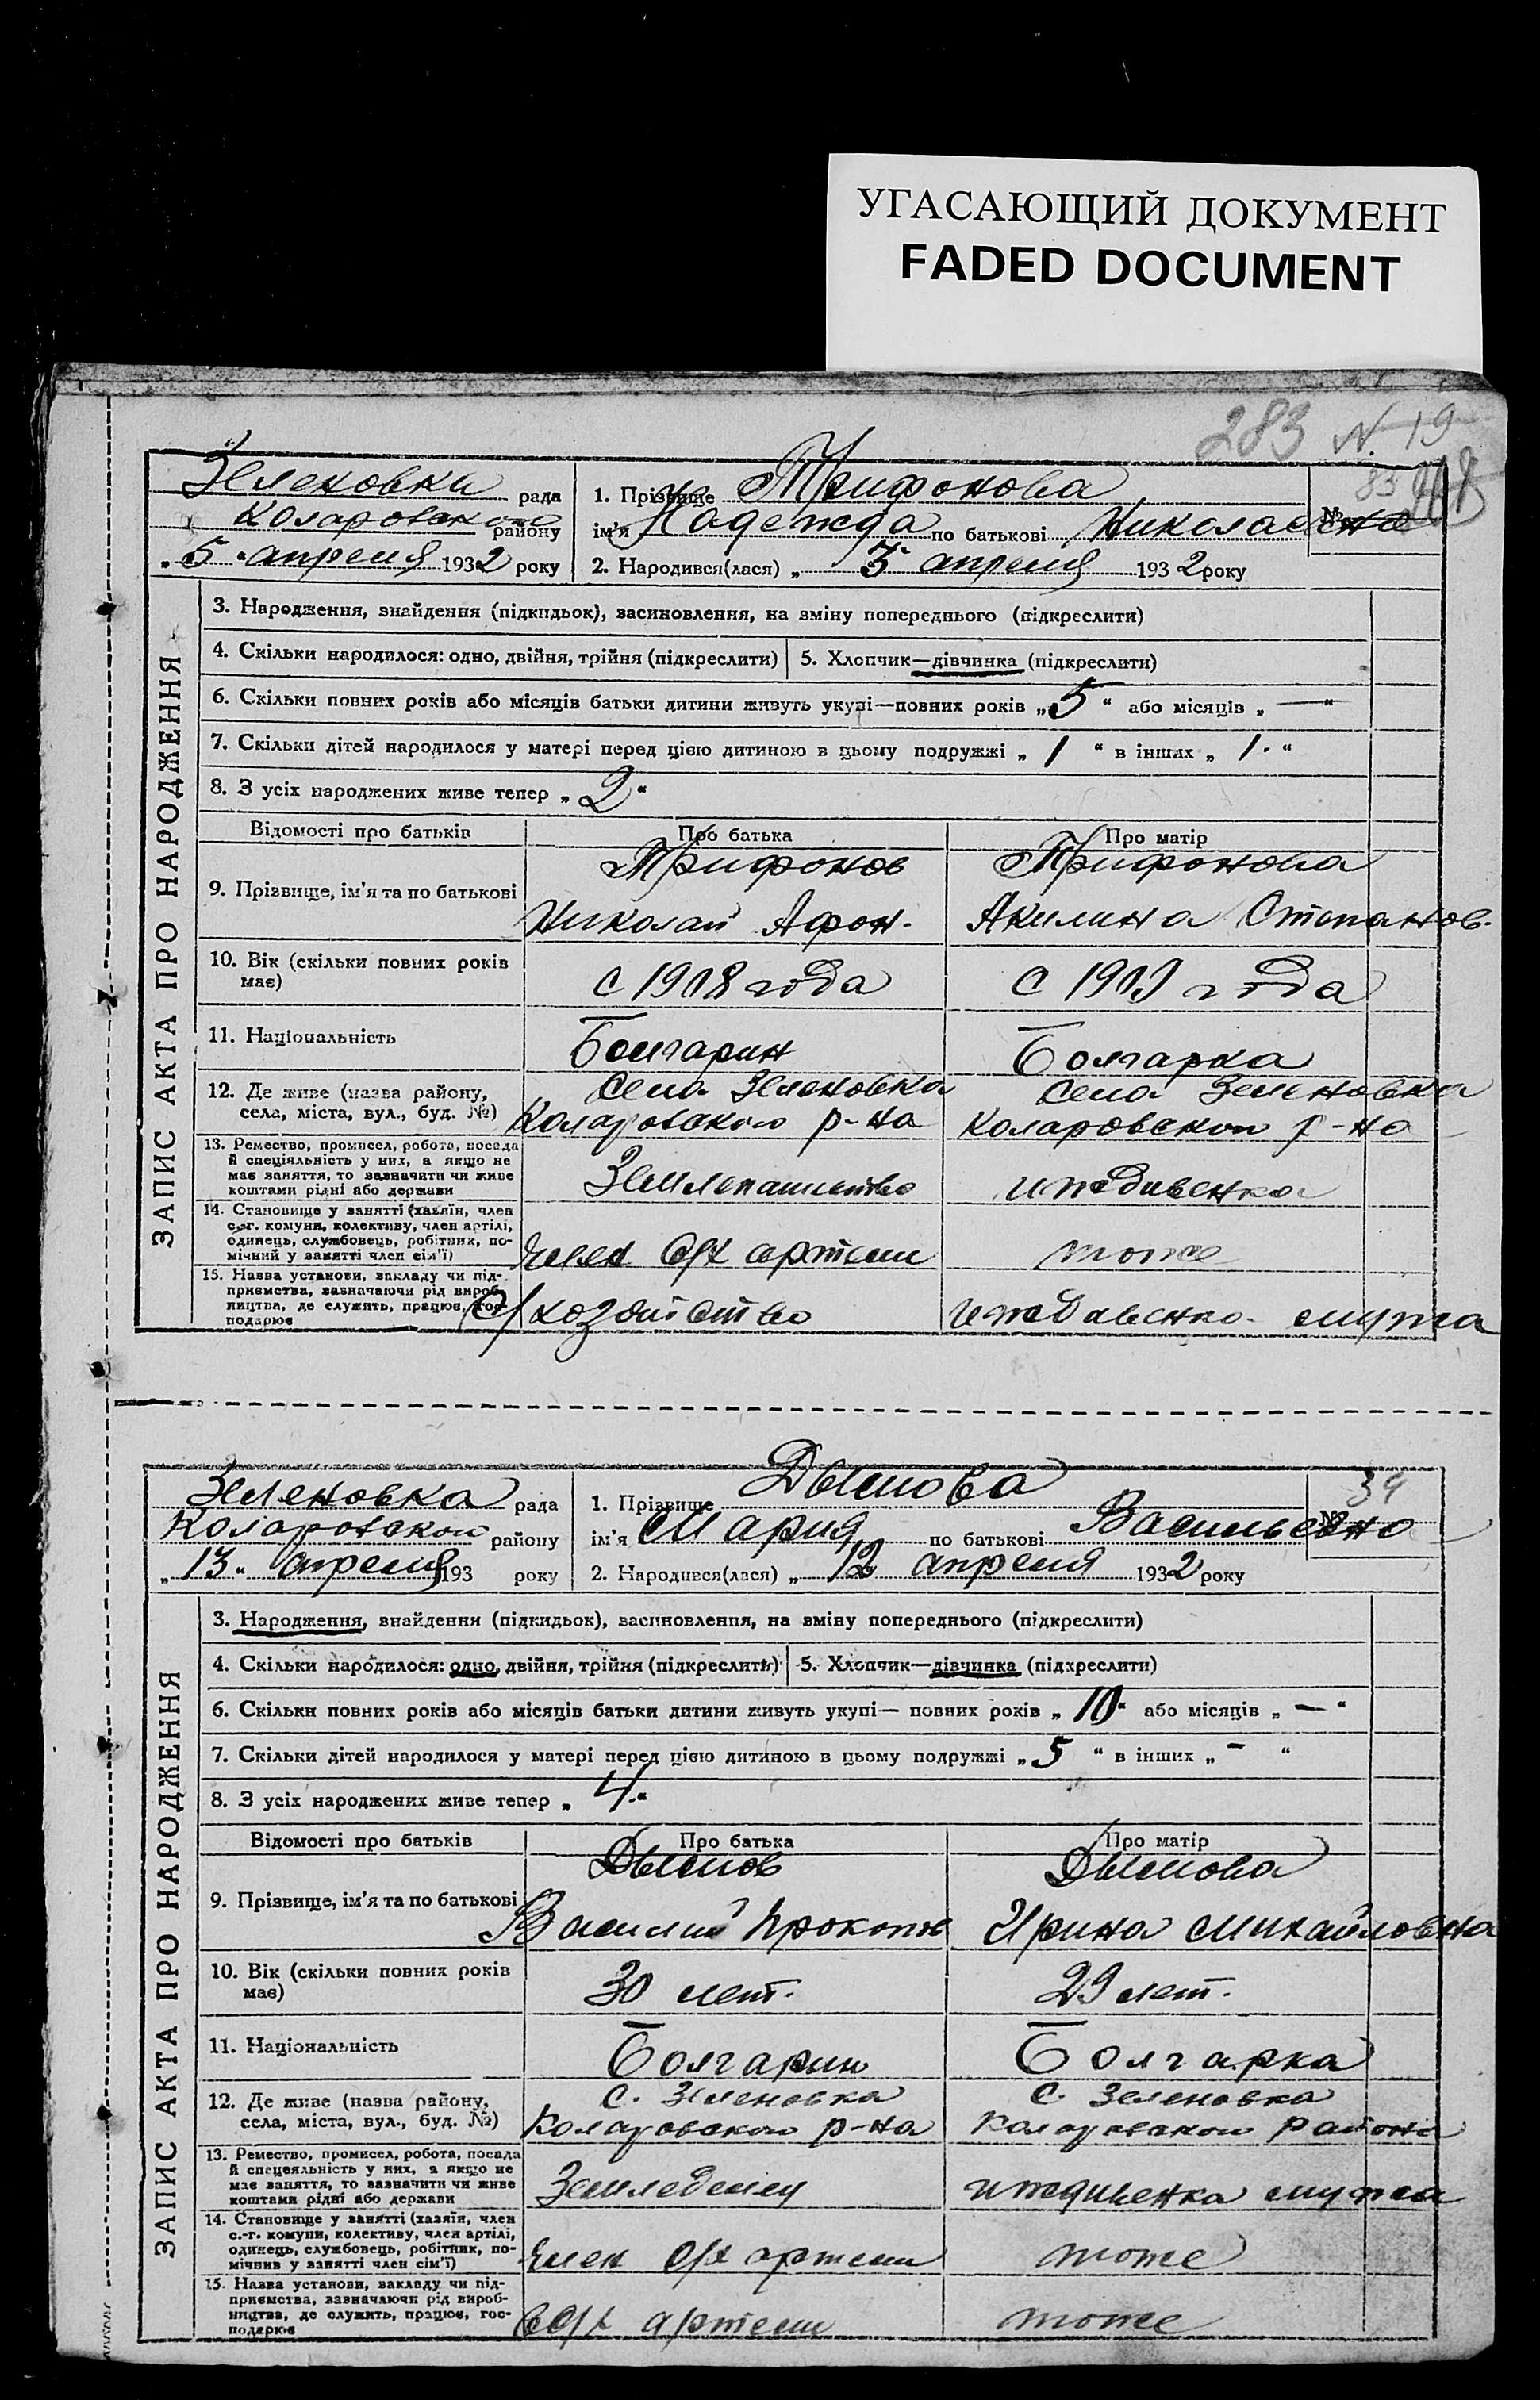 УГАСАЮЩИЙ ДОКУМЕНТ
FADED DOCUMENT
283 N. 19
Зеленовки рада
Коларовского району
„ 5 “ апреля 1932 року
1. Прізвище Трифонова
ім'я Надежда по батькові Николаевна
2. Народився(лася) „ 3 апреля 1932 року
№ 83
ЗАПИС АКТА ПРО НАРОДЖЕННЯ
3. Народження, знайдення (підкидьок), засиновлення, на зміну попереднього (підкреслити)
4. Скільки народилося: одно, двійня, трійня (підкреслити) 5. Хлопчик—дівчинка (підкреслити)
6. Скільки повних років або місяців батьки дитини живуть укупі—повних років „ 5 “ або місяців „ — “
7. Скільки дітей народилося у матері перед цією дитиною в цьому подружжі „ 1 “ в інших „ 1. “
8. З усіх народжених живе тепер „ 2 “
Відомості про батьків Про батька Про матір
9. Прізвище, ім'я та по батькові
Трифонов
Николай Афон.
Трифонова
Акилина Степанов.
10. Вік (скільки повних років має)
с 1908 года
с 1909 года
11. Національність
Болгарин
Болгарка
12. Де живе (назва району,
села, міста, вул., буд. №)
Села Зеленовка
Коларовского р-на
Села Зеленовка
Коларовского р-на
13. Ремество, промисел, робота, посада
й спеціяльність у них, а якщо не
має заняття, то зазначити чи живе
коштами рідні або держави
Землепашество
иждивенка
14. Становище у занятті (хазяїн, член
с.-г. комуни, колективу, член артілі,
одинець, службовець, робітник, по-
мічний у занятті член сім'ї)
Член С/х артели
тоже
15. Назва установи, закладу чи під-
приємства, зазначаючи рід вироб-
ництва, де служить, працює, гос-
подарює
С/хозяйство
иждивенка мужа
Зеленовка рада
Коларовского району
„ 13 “ апреля 193 року
1. Прізвище Дымова
ім'я Мария по батькові Васильевна
2. Народився(лася) „ 12 апреля 1932 року
№ 34
ЗАПИС АКТА ПРО НАРОДЖЕННЯ
3. Народження, знайдення (підкидьок), засиновлення, на зміну попереднього (підкреслити)
4. Скільки народилося: одно, двійня, трійня (підкреслить) 5. Хлопчик—дівчинка (підкреслити)
6. Скільки повних років або місяців батьки дитини живуть укупі— повних років „ 10 “ або місяців „ — “
7. Скільки дітей народилося у матері перед цією дитиною в цьому подружжі „ 5 “ в інших „ - “
8. З усіх народжених живе тепер „ 4. “
Відомості про батьків Про батька Про матір
9. Прізвище, ім'я та по батькові
Дымов
Василий Прокопов
Дымова
Ирина Михайловна
10. Вік (скільки повних років має)
30 лет.
29 лет.
11. Національність
Болгарин
Болгарка
12. Де живе (назва району,
села, міста, вул., буд. №)
С. Зеленовка
Коларовского р-на
С. Зеленовка
Коларовского района
13. Ремество, промисел, робота, посада
й спецеяльність у них, а якщо не
має заняття, то зазначити чи живе
коштами рідні або держави
Земледелец
иждивенка мужа
14. Становище у занятті (хазяїн, член
с.-г. комуни, колективу, член артілі,
одинець, службовець, робітник, по-
мічник у занятті член сім'ї)
Член С/х артели
тоже
15. Назва установи, закладу чи під-
приємства, зазначаючи рід вироб-
ництва, де служить, працює, гос-
подарює
в С/х артели
тоже